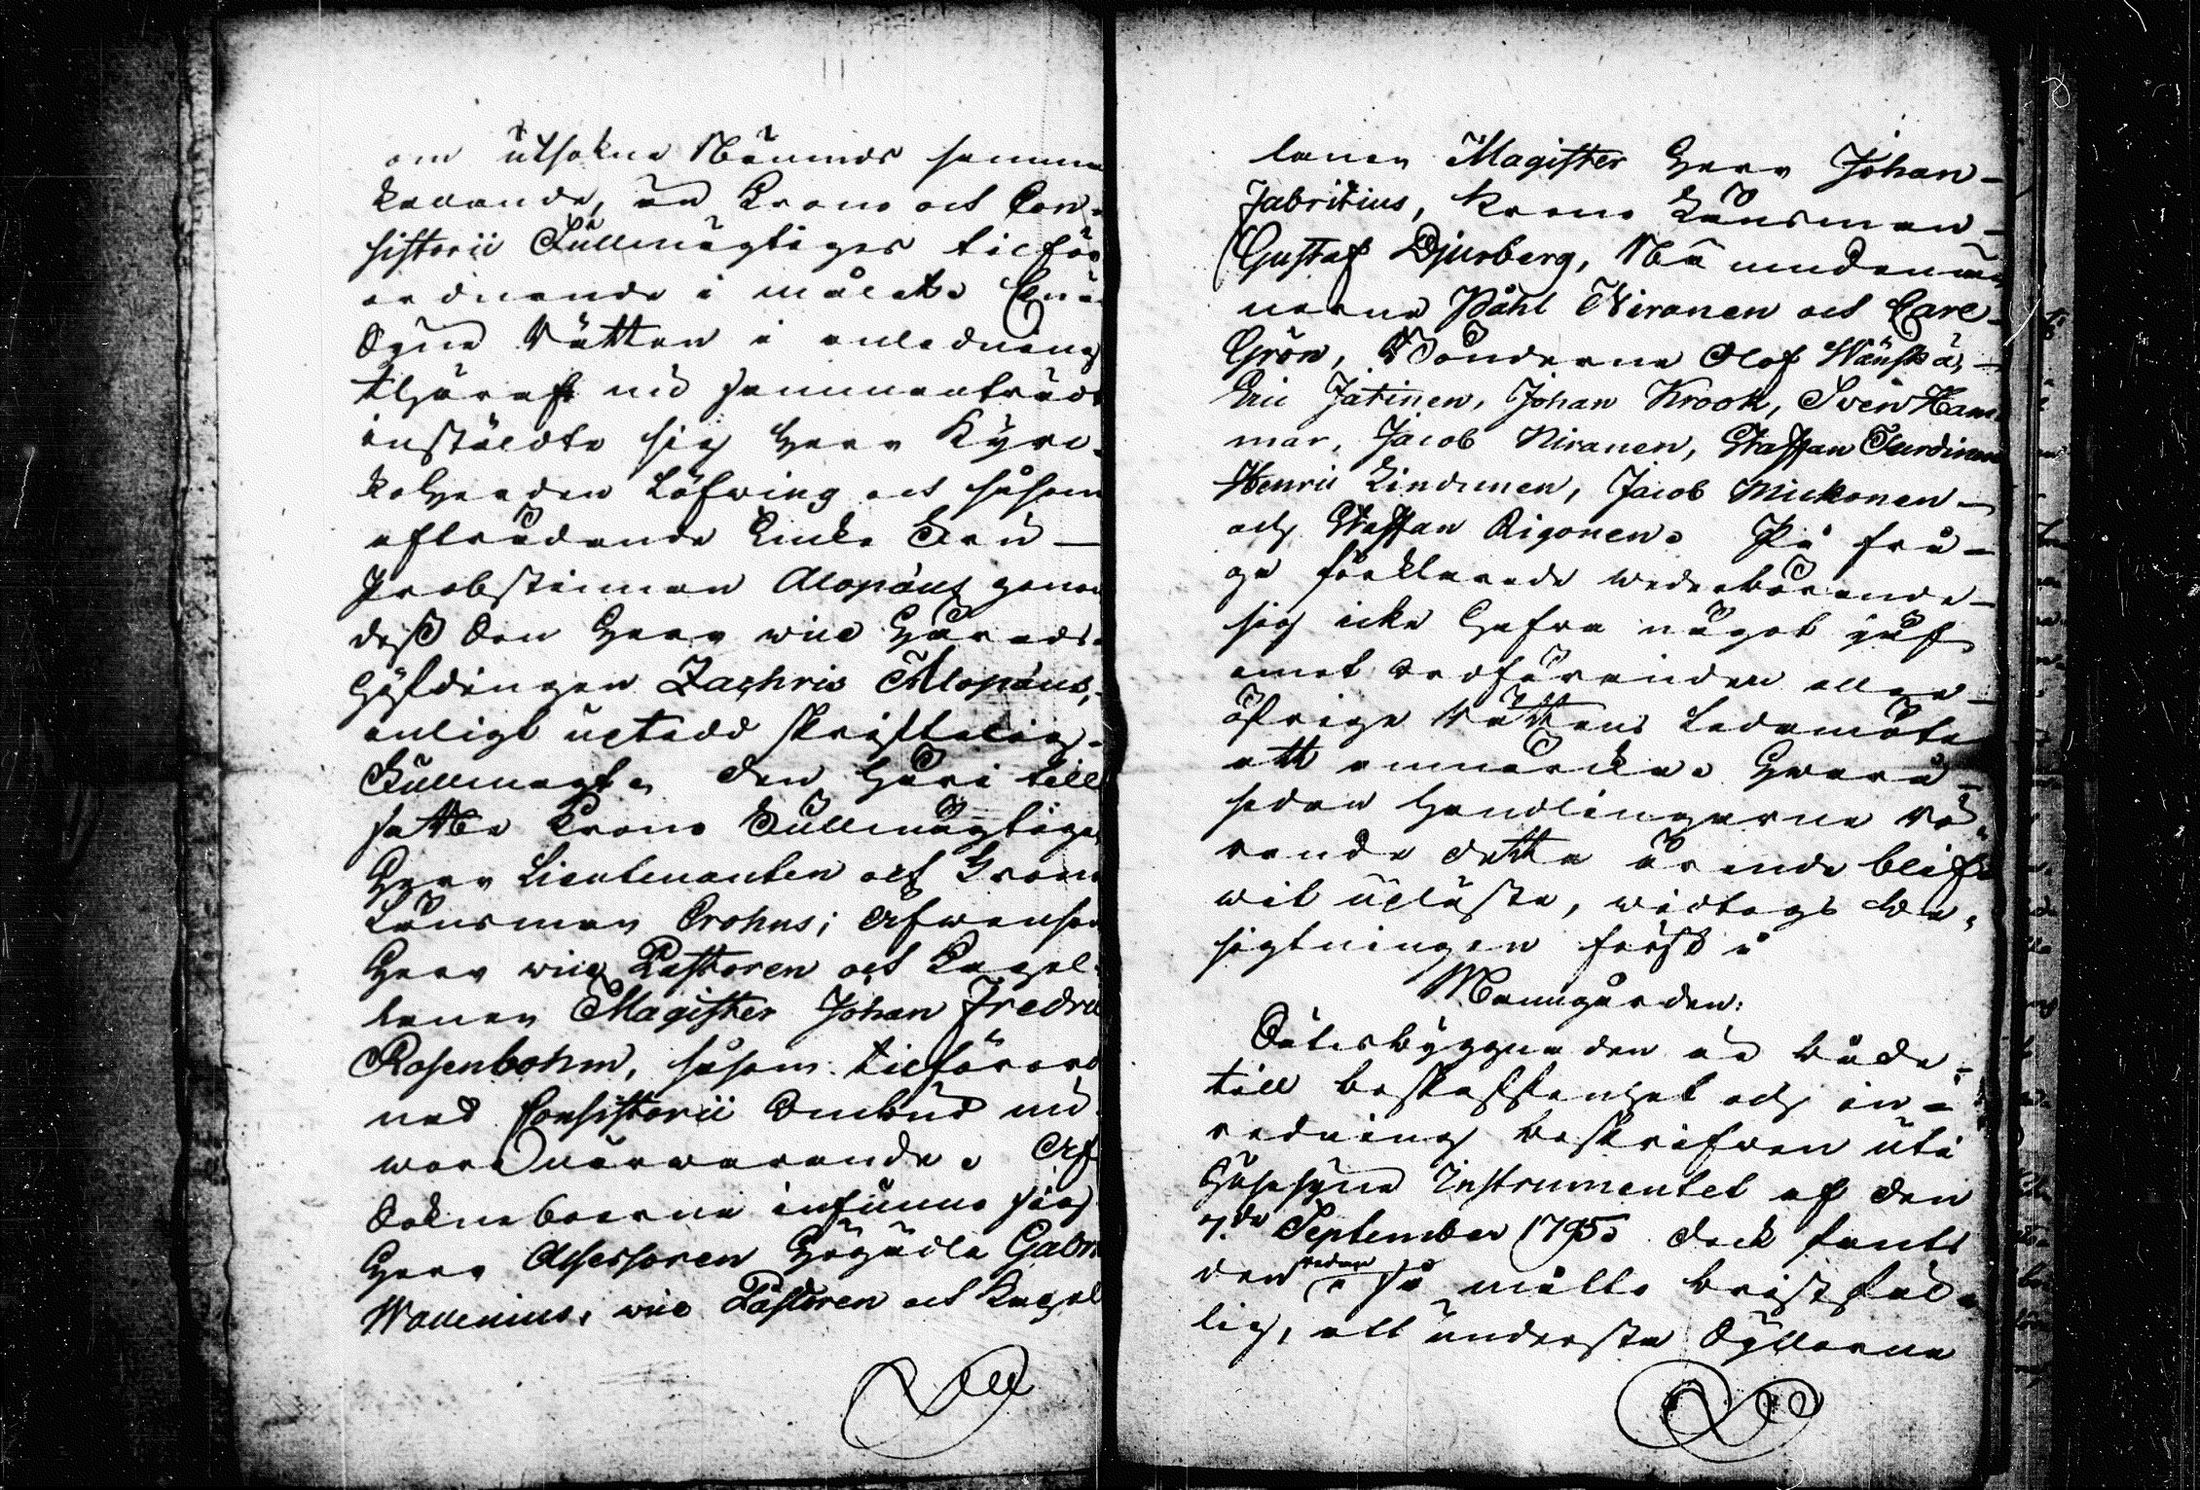 om utsokne Nämnds samman
kallande, än Krono och Con-
sistorii Fullmägtiges tilför
ordnande i målet. Enär
Syne Rätten i anledning
thäraf nu sammanträdt
instäldte sig Herr Kyrc-
koherden Löfwing och såsom
afträdande Enke Fru
Probstinnan Alopäus genom
deß Son Herr vice Härads-
höfdingen Zachris Alopäus,
enligt upted skriftelig
Fullmagt, den häri till
satte Krono Fullmägtige
Herr Lieutenanten och Krono
Länsman Crohns; Äfwensom
Herr vice Pastoren och Capel-
lanen Magister Johan Fredric
Rosenbohm, såsom tilförord
nad Consistorii Ombud nu
wore närwarande. Af
Sokneboerne infunno sig
Herr Assessoren Högädle Gabr
Wallenius, vice Pastoren och Capel
lanen Magister Herr Johan
Fabritius, Krono Länsman
Gustaf Djurberg, Nämndemän
nerne Påhl Niranen och Carl
Grön, Bönderne Olof Wänskä,
Eric Jatinen, Johan Krook, Sven Ham
mar, Jacob Niranen, Staffan Turdinen
Henric Lindunen, Jacob Mickonen
och Staffan Rigonen. På frå-
ga förklarade wederbörande
sig icke hafwa något jäf
emot ordföranden eller
öfrige Rättens Ledamöter
att anmärka. Hwarå
sedan handlingarne rö-
rande detta ärende blif-
wit upläste, widtogs be-
sigtningen först å
Manngården:
Sätesbyggnaden är både
till beskaffenhet och in-
redning beskrifwen uti
Husesyne Instrumentet af den
7.de September 1795. dock fants
den redan i så måtto bristfäl-
lig, att understa Syllarne